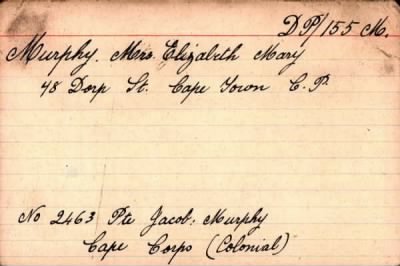 DP/155 M.
Murphy. Mrs. Elizabeth Mary
48 Dorp St. Cape Town C.P.
No 2463 Pte Jacob: Murphy
Cape Corps (Colonial)